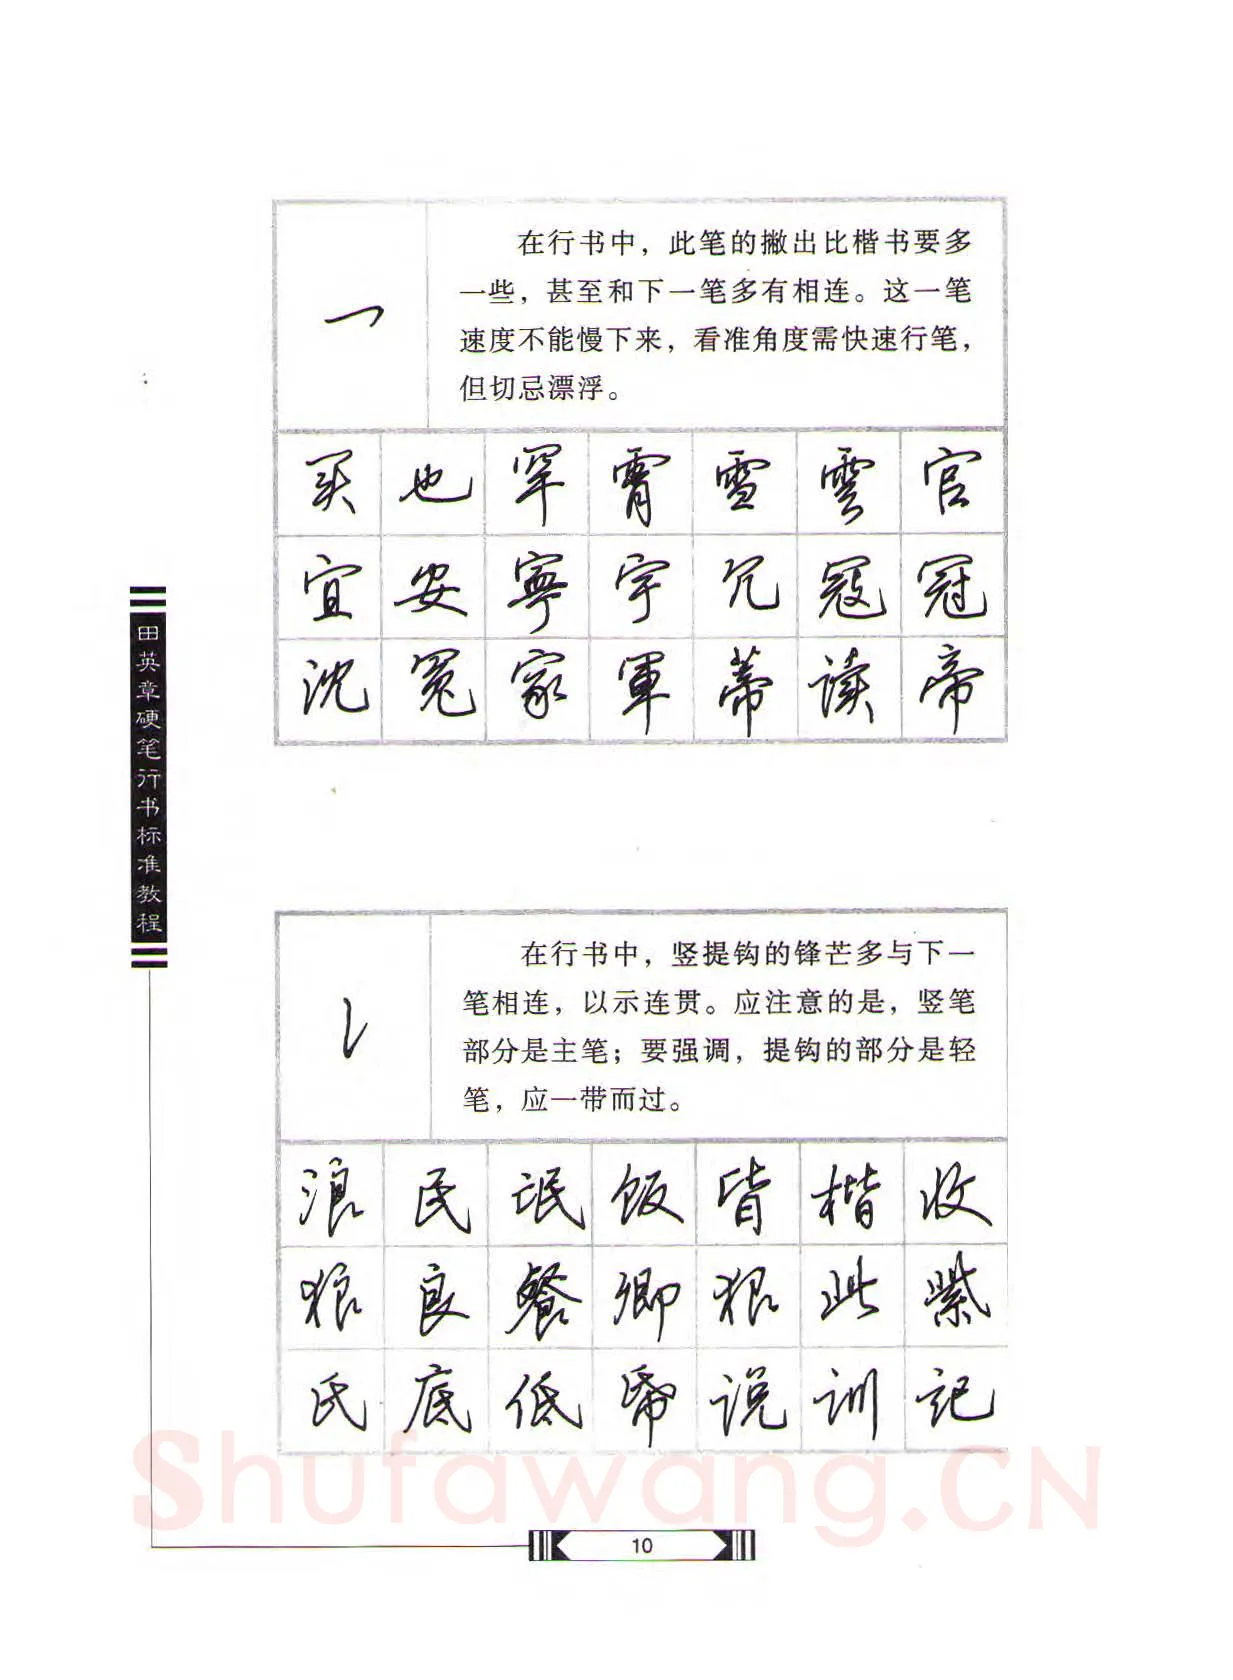 在行书中，此笔的撇出比楷书要多
一些，甚至和下一笔多有相连。这一笔
速度不能慢下来，看准角度需快速行笔，
但切忌漂浮。
买 也 罕 霄 雪 雲 官
宜 安 寧 宇 冗 寇 冠
沈 冤 家 軍 蒂 读 帝
田英章硬笔行书标准教程
在行书中，竖提钩的锋芒多与下一
笔相连，以示连贯。应注意的是，竖笔
部分是主笔；要强调，提钩的部分是轻
笔，应一带而过。
浪 民 氓 饭 皆 楷 收
狼 良 餐 卿 狠 此 紫
氏 底 低 说 训 记
Shufawang.CN
10